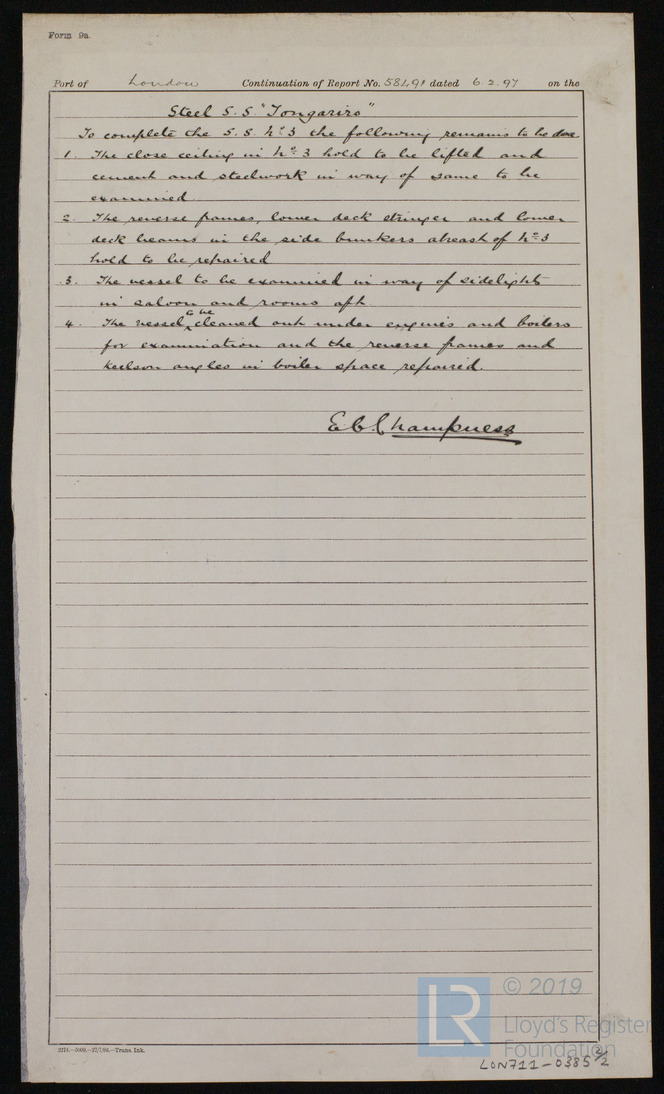 Form 9a.
Port of London Continuation of Report No. 58491 dated 6.2.97 on the
Steel S.S. "Tongariro"
To complete the S.S. No 3 the following remains to be done
1. The close ceiling in No 3 hold to be lifted and
cement and steelwork in way of same to be
examined
2. The reverse frames, lower deck stringer and lower
deck beams in the side bunkers abreast of No 3
hold to be repaired
3. The vessel to be examined in way of sidelights
in saloon and rooms aft
4. The vessel to be cleaned out under engines and boilers
for examination and the reverse frames and
keelson angles in boiler space repaired.
E C Champness
Trans. Ink.
© 2019
LR
Lloyd's Register
Foundation
LON711-0385 2/2